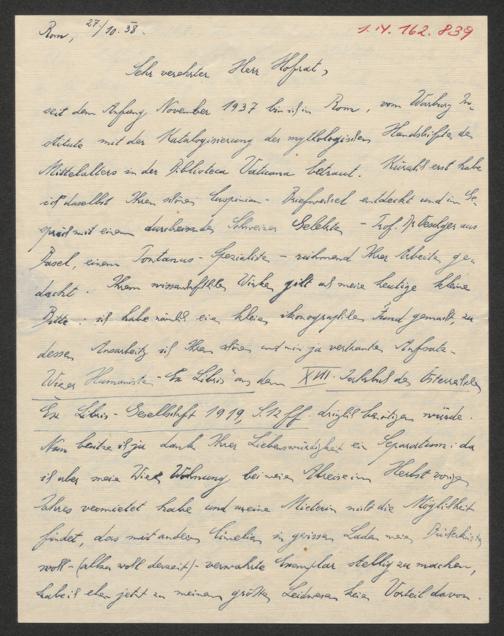 Rom, 27/10.38.
1.IX.162.839
Sehr verehrter Herr Hofrat,
seit dem Anfang November 1937 bin ich in Rom, vom Warburg In-
stitute mit der Katalogisierung der mythologischen Handschriften des
Mittelalters in der Biblioteca Vaticana betraut. Kürzlich erst habe
ich daselbst Ihren schönen Cuspinian-Briefwechsel entdeckt und im Ge-
spräch mit einem durchreisenden Schweizer Gelehrten - Prof. aus
Basel, einem Pontanus-Spezialisten - rühmend Ihrer Arbeiten ge-
dacht. Ihrem wissenschaftlichen Wirken gilt auch meine heutige kleine
Bitte: ich habe nämlich einen kleinen ikonographischen Fund gemacht, zu
dessen Ausarbeitung ich Ihren schönen und mir ja vertrauten Aufsatz
"Wiener Humanisten-Ex Libris" aus dem XVII. Jahrbuch der Österreichischen
Ex Libris-Gesellschaft 1919, S.12 ff dringlich benötigen würde.
Nun besitze ich ja dank Ihrer Liebenswürdigkeit ein Separatum: da
ich aber meine Wiener Wohnung bei meiner Abreise im Herbst vorigen
Jahres vermietet habe und meine Mieterin nicht die Möglichkeit
findet, das mit anderen Cimelien in gewissen Laden meines
wohl- (allzu wohl derzeit)- verwahrte Exemplar stellig zu machen,
habe ich eben jetzt zu meinem größten Leidwesen keinen Vorteil davon.